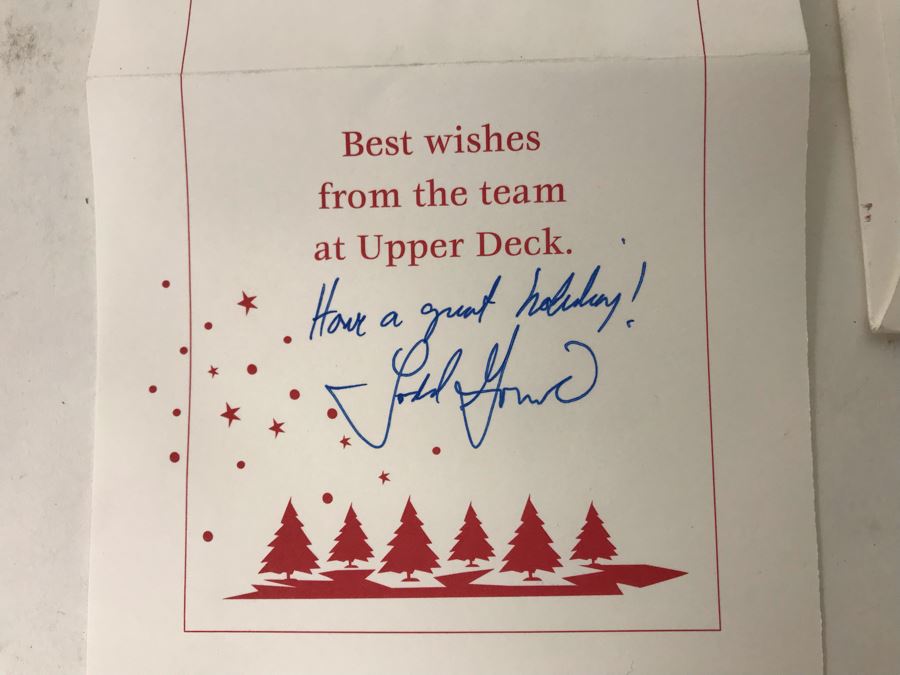 Best wishes
from the team
at Upper Deck.
Have a great holiday!
Todd